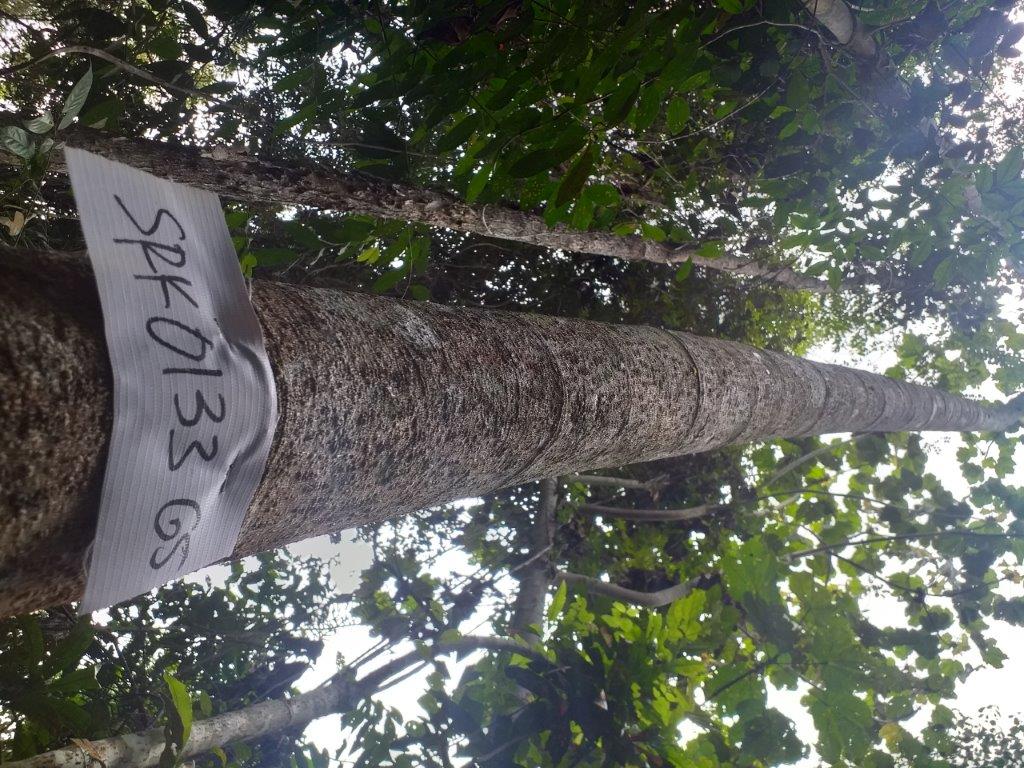 SPK0133 GS